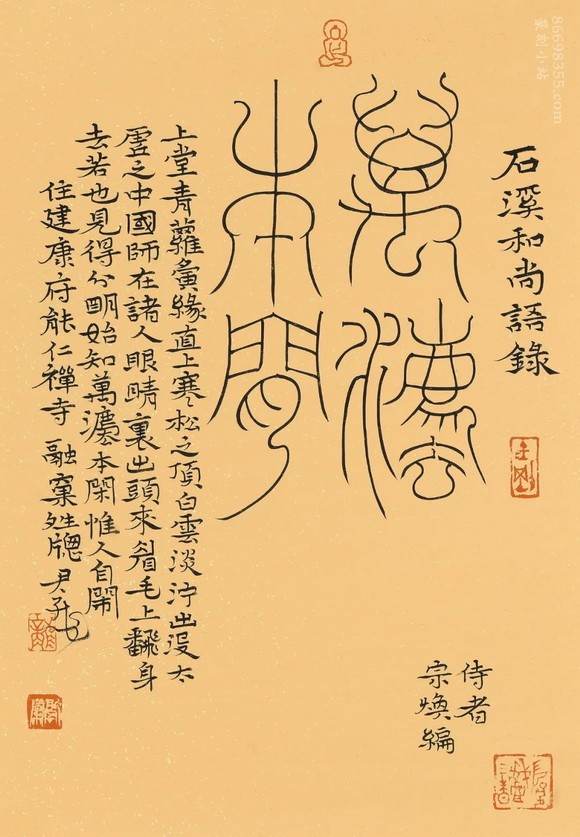 石溪和尚語錄
萬灋
本閒
侍者
宗煥編
上堂青蘿夤緣直上寒松之頂白雲淡泞出沒太
虛之中國師在諸人眼睛裏出頭來眉毛上飜身
去若也見得分明始知萬灋本閑惟人自鬧
住建康府能仁禪寺 融
86698355.com
篆刻小站